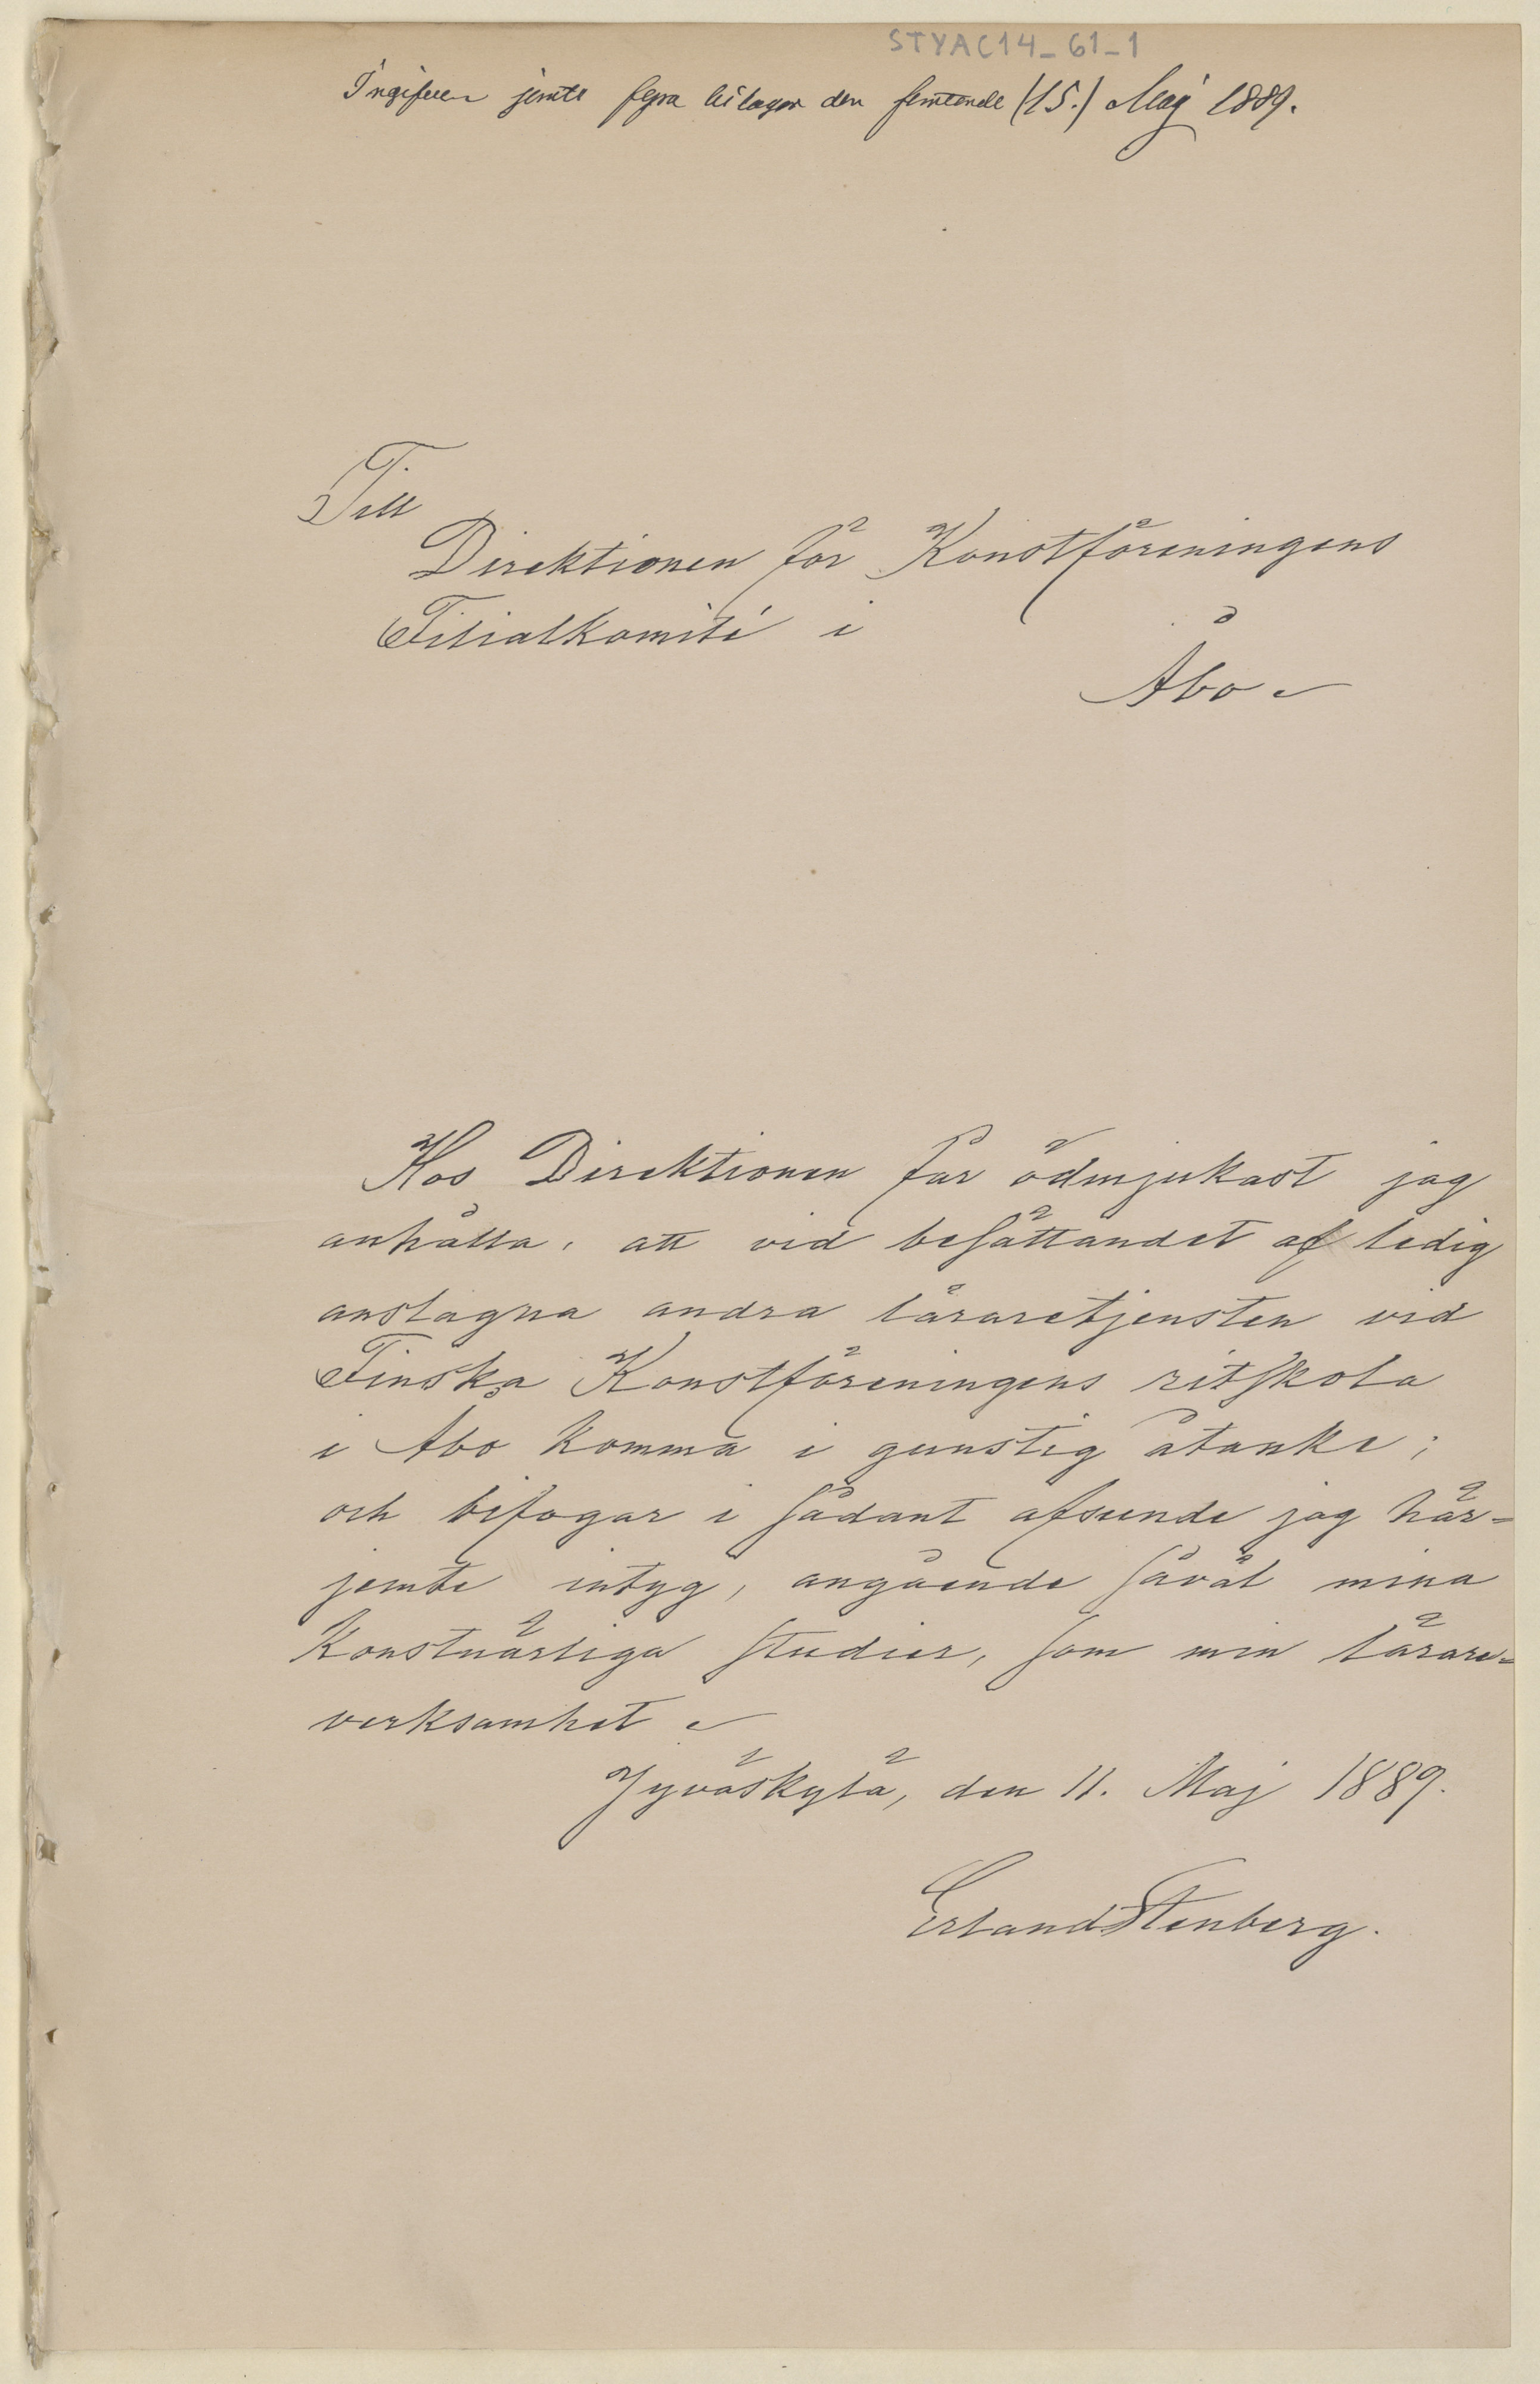 STYAC14_61_1
Ingifven jemte fyra bilagor den femtonde (15.) Maj 1889.
Till
Direktionen för Konstföreningens
Filialkomité i
Åbo
Hos Direktionen får ödmjukast jag
anhålla, att vid besättandet af ledig
anslagna andra läraretjensten vid
Finska Konstföreningens ritskola
i Åbo komma i gunstig åtanke;
och bifogar i sådant afseende jag här-
jemte intyg, angående såväl mina
Konstnärliga studier, som min lärare-
verksamhet
Jyväskylä, den 11. Maj 1889.
Erland Stenberg.